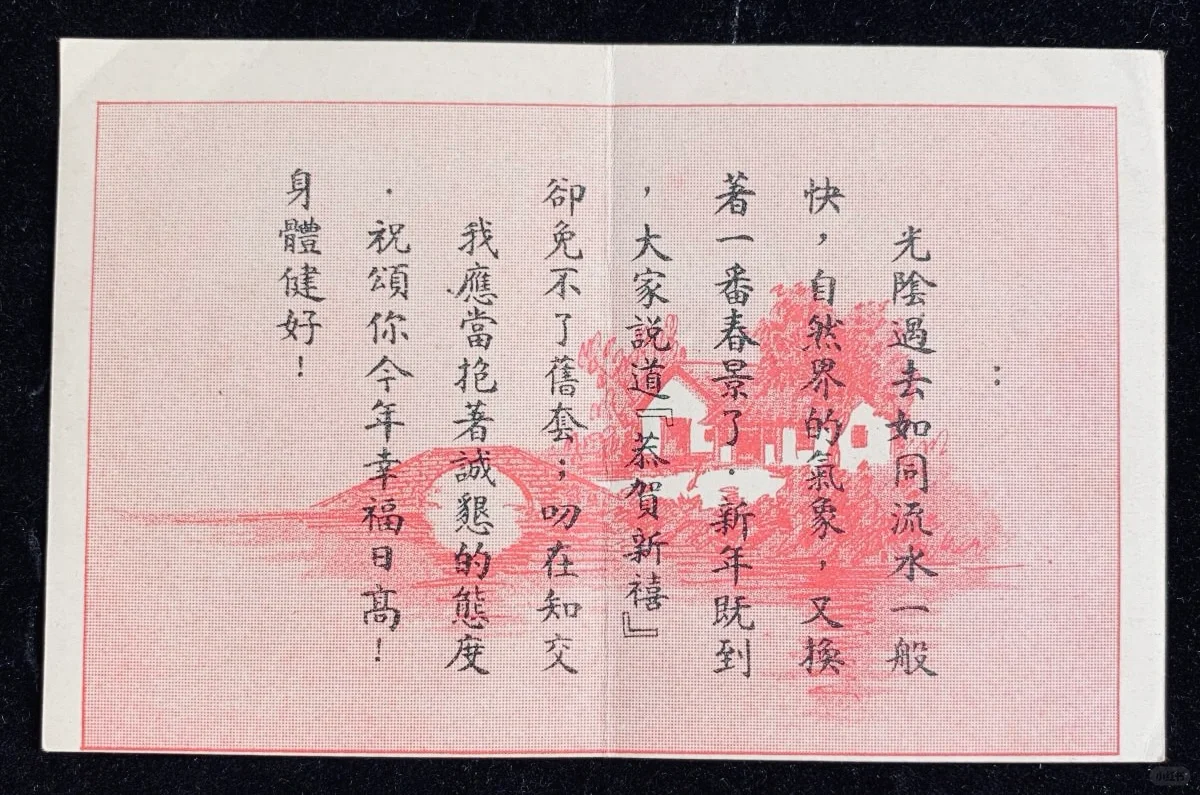 ：
光陰過去如同流水一般
快，自然界的氣象，又換
著一番春景了．新年既到
，大家説道『恭賀新禧』
卻免不了舊套；叨在知交
我應當抱著誠懇的態度
．祝頌你今年幸福日高！
身體健好！
小红书